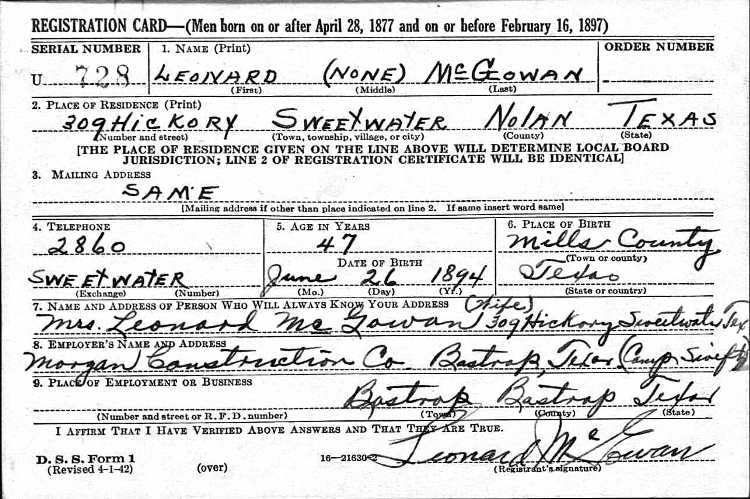 REGISTRATION CARD—(Men born on or after April 28, 1877 and on or before February 16, 1897)
SERIAL NUMBER 1. NAME (Print) ORDER NUMBER
U 728 LEONARD (NONE) McGOWAN
(First) (Middle) (Last)
2. PLACE OF RESIDENCE (Print)
309 HICKORY SWEETWATER NOLAN TEXAS
(Number and street) (Town, township, village, or city) (County) (State)
[THE PLACE OF RESIDENCE GIVEN ON THE LINE ABOVE WILL DETERMINE LOCAL BOARD
JURISDICTION; LINE 2 OF REGISTRATION CERTIFICATE WILL BE IDENTICAL]
3. MAILING ADDRESS
SAME
[Mailing address if other than place indicated on line 2. If same insert word same]
4. TELEPHONE 5. AGE IN YEARS 6. PLACE OF BIRTH
2860 47 Mills County
DATE OF BIRTH (Town or county)
SWEETWATER June 26 1894 Texas
(Exchange) (Number) (Mo.) (Day) (Yr.) (State or country)
7. NAME AND ADDRESS OF PERSON WHO WILL ALWAYS KNOW YOUR ADDRESS (Wife)
Mrs. Leonard McGowan 309 Hickory Sweetwater Tex
8. EMPLOYER'S NAME AND ADDRESS
Morgan Construction Co. Bastrop, Texas (Camp Swift)
9. PLACE OF EMPLOYMENT OR BUSINESS
Bastrop Bastrop Texas
(Number and street or R. F. D. number) (Town) (County) (State)
I AFFIRM THAT I HAVE VERIFIED ABOVE ANSWERS AND THAT THEY ARE TRUE.
Leonard McGowan
D. S. S. Form 1 16—21630-2 (Registrant's signature)
(Revised 4-1-42) (over)